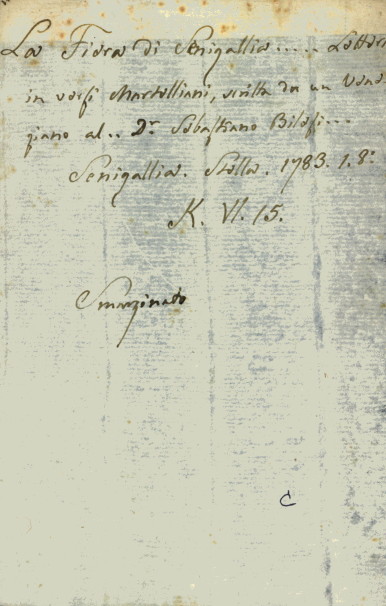 La Fiera di Senigallia..... Letter
in versi Martelliani, scritta da un Vene
ziano al.. Dr. Sebastiano Bilesi...
Senigallia. Stella. 1783. 1. 8:
K. VI. 15.
Smarginato
C